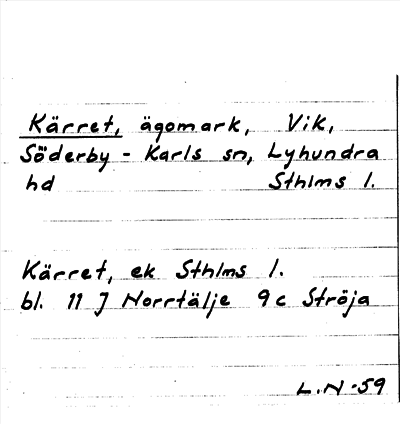 Kärret, ägomark, Vik,
Söderby - Karls sn, Lyhundra
hd Sthlms l.
Kärret, ek Sthlms l.
bl. 11 J Norrtälje 9c Ströja
L.N -59